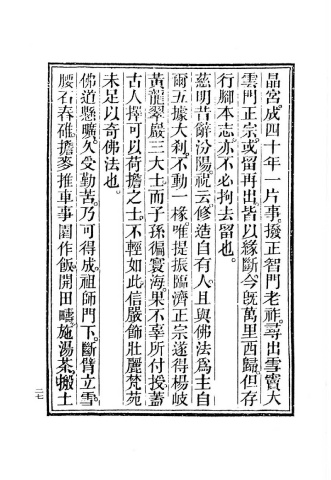 晶宮成四十年一片事。撥正智門老祚。尋出雪竇大
雲門正宗。或留再出。皆以緣斷。今旣萬里西歸。但存
行腳本志。亦不必拘去留也。
慈明昔辭汾陽。祝云。修造自有人。且與佛法爲主。自
爾五據大刹。不動一椽。唯提振臨濟正宗。遂得楊岐
黃龍翠巖三大士。而子孫徧寰海。果不辜所付授。蓋
古人擇可以荷擔之士。不輕如此。信嚴飾壯麗梵苑
未足以奇佛法也。
佛道懸曠。久受勤苦。乃可得成。祖師門下。斷臂立雪。
腰石舂碓。擔麥推車。事園作飯。開田疇。施湯茶。搬土
二七